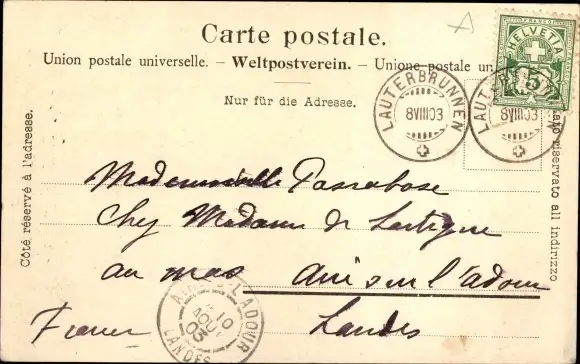 Carte postale.
Union postale universelle. – Weltpostverein. – Unione postale un
Nur für die Adresse.
Côté réservé à l'adresse.
lato riservato all indirizzo
FRANCO
HELVETIA
5
LAUTERBRUNNEN
8 VIII 03
LAUTERBRUNNEN
8 VIII 03
Mademoiselle Passabose
Chez Madame de Lartigue
au mas Aire sur l'adour
France Landes
L'ADOUR
10
AOUT
03
LANDES